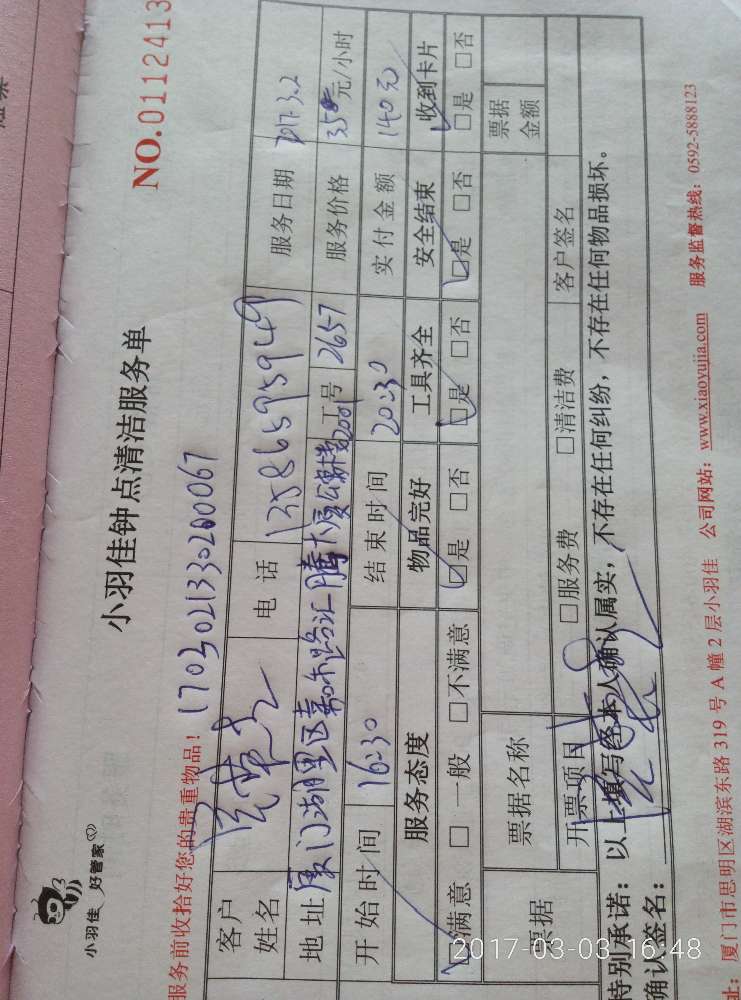 小羽佳 好管家
小羽佳钟点清洁服务单
NO.0112413
服务前收拾好您的贵重物品!
客户姓名 电话 13586595949 服务日期 2017.3.2
地址 厦门湖里区嘉禾路汇腾大厦 2001 工号 2657 服务价格 35元/小时
开始时间 16:30 结束时间 20:30 实付金额 140元
服务态度 物品完好 工具齐全 安全结束 收到卡片
☑满意 □一般 □不满意 ☑是 □否 ☑是 □否 ☑是 □否 ☑是 □否
票据 票据名称 票据金额
开票项目 □服务费 □清洁费 客户签名
特别承诺:以上填写经本人确认属实,不存在任何纠纷,不存在任何物品损坏。
确认签名:
址:厦门市思明区湖滨东路 319 号 A 幢 2 层小羽佳 公司网站:www.xiaoyujia.com 服务监督热线:0592-5888123
2017-03-03 16:48